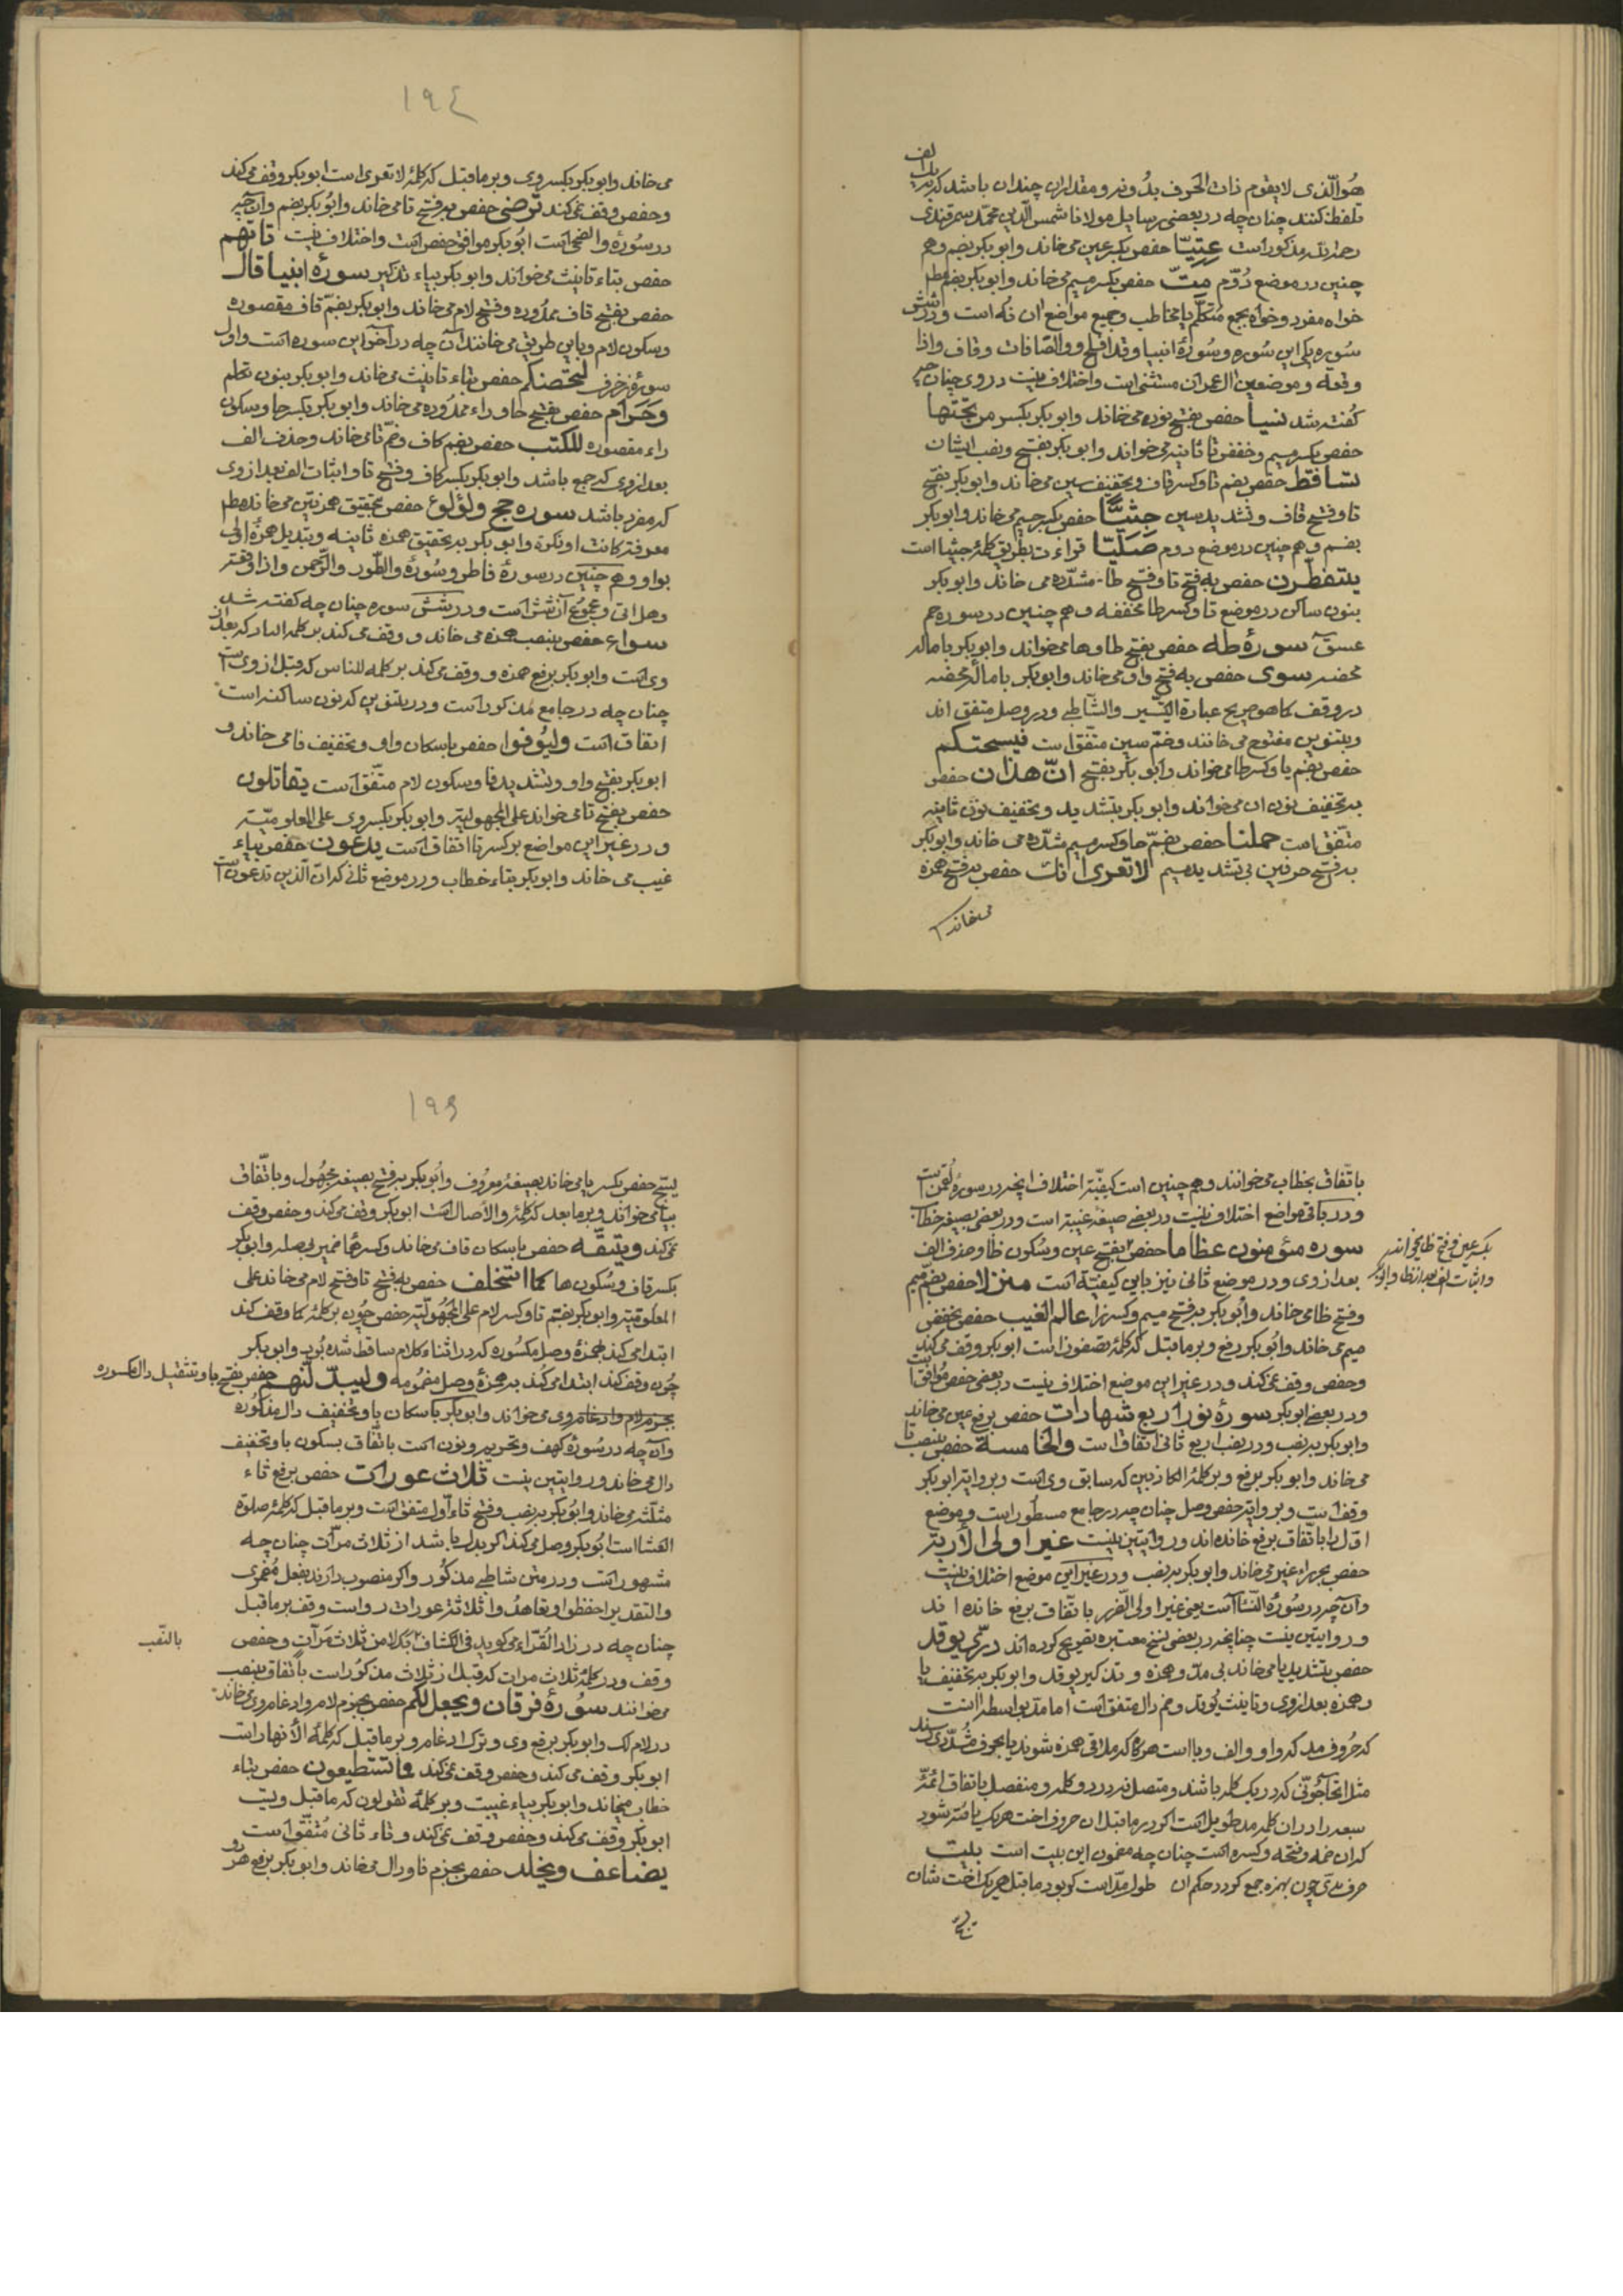 هوالّذی لایقوم ذات الحروف بدونه ومقدار ان چندان باشد که بدل الف
تلفظ کنند چنان چه در بعضی رسایل مولانا شمس الدین محمد سمرقندی
رحمه الله مذکور است عِتِیّا حفص بکسر عین می خاند وابوبکر بضم وهم
چنین در موضع دوّم مِتّ حفص بکسر میم می خاند وابوبکر بضم مطم
خواه مفرد وخواه بجمع متکلّم یا مخاطب وجمیع مواضع ان نُه است ودر شش
سوره یکی این سوره وسورهٔ انبیا وقد افلح ووالصّافات وقاف واذا
وقعه وموضعین ال عمران مستثنی است واختلاف نیست در وی چنان چه
کفته شد نسیا حفص بفتح نون می خاند وابوبکر بکسر من تحتها
حفص بکسر میم وخفض تا ثانیه می خواند وابوبکر بفتح ونصب ایشان
تساقط حفص بضم تا وکسر قاف وتخفیف سین می خاند وابوبکر بفتح
تا وفتح قاف وتشدید سین جِثیّا حفص بکسر جیم می خاند وابوبکر
بضم وهم چنین در موضع دوم صَلِیّا قراءت بطریق کلمهٔ جثیا است
یتفطّرن حفص به فتح تا وفتح طا مشدّده می خاند وابوبکر
بنون ساکن در موضع تا وکسر طا مخففه وهم چنین در سوره حم
عسق سورهٔ طه حفص بفتح طا وها می خواند وابوبکر با ماله
محضه سوی حفص به فتح واو می خاند وابوبکر با مالهٔ محضه
در وقف کما هو صریح عبارة التیسیر والشاطبی ودر وصل متفق اند
وبتنوین مفتوح می خانند وضمّ سین متفق است فیسحتکم
حفص بضم یا وکسر حا می خواند وابو بکر بفتح انّ هذان حفص
به تخفیف نون ان می خواند وابوبکر بتشدید وتخفیف نون ثانیه
متّفق است حملنا حفص بضمّ حا وکسر میم مشدّده می خاند وابوبکر
به فتح حرفین بی تشدید میم لا تعری انک حفص به فتح همزه
می خاند
١٩٤
می خاند وابوبکر بکسر وی وبر ماقبل که کلمهٔ لا تعری است ابوبکر وقف می کند
وحفص وقف نمی کند ترضی حفص به فتح تا می خاند وابوبکر بضم وآن چه
در سورهٔ والضحی است ابوبکر موافق حفص است واختلاف نیست تاتهم
حفص بتاء تانیث می خواند وابوبکر بیاء تذکیر سورهٔ انبیا قال
حفص بفتح قاف ممدوده وفتح لام می خاند وابوبکر بضمّ قاف مقصوره
وسکون لام وباین طریق می خانند آن چه در آخر این سوره است واول
سورهٔ زخرف لتحصنکم حفص بتاء تانیث می خاند وابوبکر بنون تکلم
وحَرَام حفص بفتح حا وراء ممدوده می خاند وابوبکر بکسر حا وسکون
راء مقصوره للکتب حفص بضم کاف وضمّ تا می خاند وحذف الف
بعد از وی که جمع باشد وابوبکر بکسر کاف وفتح تا واثبات الف بعد از وی
که مفرد باشد سوره حج ولؤلؤ حفص بتحقیق همزتین می خاند مطم
معرفة کانت او نکرة وابوبکر به تحقیق همزه ثانیه وتبدیل همزهٔ اولی
بواو وهم چنین در سورهٔ فاطر وسُورهٔ والطّور والرّحمن واذا وقعت
وهل اتی ومجموع آن شش است ودر شش سوره چنان چه کفته شد
سواء حفص بنصب همزه می خاند ووقف می کند بر کلمه الباد که بعد از
وی است وابوبکر برفع همزه ووقف می کند بر کلمه للناس که قبل از وی است
چنان چه در جامع مذکور است ودر یتنوین که نون ساکنه است
اتفاق است ولیُوفوا حفص باسکان واو وتخفیف فا می خاند و
ابوبکر بفتح واو وتشدید فا وسکون لام متّفق است یقاتلون
حفص بفتح تا می خواند علی المجهولیة وابوبکر بکسر وی علی المعلومیّة
ودر غیر این مواضع بر کسر تا اتفاق است یدعون حفص بیاء
غیب می خاند وابوبکر بتاء خطاب ودر موضع ثانی که انّ الّذین تدعون است
باتّفاق بخطاب می خوانند وهم چنین است کیفیّة اختلاف انچه در سورهٔ لقمن است
ودر باقی مواضع اختلاف نیست در بعضی صیغهٔ غیبة است ودر بعضی بصیغه خطاب
سوره مؤمنون عظاما حفص بفتح عین وسُکون ظا وحذف الف
بعد از وی ودر موضع ثانی نیز باین کیفیّة است منزلا حفص بضمّ میم
بکسر عین وفتح ظا می خواند
واثبات الف بعد از ظا وابوبکر
وفتح زا می خاند وابوبکر به فتح میم وکسر زا عالم الغیب حفص بخفض
میم می خاند وابوبکر برفع وبر ماقبل که کلمهٔ یصفون است ابوبکر وقف می کند
وحفص وقف نمی کند ودر غیر این موضع اختلاف نیست در بعضی حفص موافق است
ودر بعضی ابوبکر سورهٔ نور اربع شهادات حفص برفع عین می خاند
وابوبکر به نصب ودر نصب اربع ثانی اتفاق است والخامسة حفص بنصب تا
می خاند وابوبکر برفع وبر کلمهٔ الکاذبین که سابق وی است وبروایة ابوبکر
وقف است وبروایة حفص وصل چنان چه در جامع مسطور است وموضع
اوّل را باتفاق برفع خانده اند وروایتین نیست غیر اولی الاربة
حفص بجر راء غیر می خاند وابوبکر به نصب ودر غیر این موضع اختلاف نیست
وآن چه در سورهٔ النّساء است یعنی غیر اولی الضّرر باتّفاق برفع خانده اند
وروایتین نیست چنانچه در بعضی نسخ معتبره تصریح کرده اند درّی یوقد
حفص بتشدید یا می خاند بی مدّ وهمزه وتذکیر یوقد وابوبکر به تخفیف یا
وهمزه بعد از وی وتانیث تُوقد وضم دال متفق است اما مدّ بواسطهٔ انست
که حُروف مد که واو والف ویا است هرکاه که ملاقی همزه شوند یا بحروف مُشدّد رسند
مثل اتحاجّونّی که در یک کلمه باشند ومتصل نه در دو کلمه ومنفصل باتفاق ائمّهٔ
سبعه را در ان کلمه مد طویل است اکر در ماقبل ان حروف اخت هر یک یافته شود
که ان ضمه وفتحه وکسره است چنان چه مضمون این بیت است بیت
حرف مدّی چون بهمزه جمع کردد حکم ان طول مدّ است کر بود ماقبل هر یک اخت شان
١٩٥
یسبّح حفص بکسر با می خاند بصیغهٔ معروف وابوبکر به فتح بصیغه مجهول وباتّفاق
بیا می خواند وبر ما بعد که کلمهٔ والاصال است ابوبکر وقف می کند وحفص وقف
نمی کند ویتّقه حفص باسکان قاف می خاند وکسر ها ضمیر بی صله وابوبکر
بکسر قاف وسُکون ها کما استخلف حفص به فتح تا وفتح لام می خاند علی
المعلومیّة وابوبکر بضم تا وکسر لام علی المجهولیّة حفص چون بر کلمهٔ کما وقف کند
ابتدا می کند بهمزهٔ وصل مکسوره که در اثناء کلام ساقط شده بُود وابوبکر
چون وقف کند ابتدا می کند به همزهٔ وصل مضمومه ولیبدّلنّهم حفص بفتح با وتثقیل دال مکسوره
بجزم لام وادغام وی می خواند وابوبکر باسکان با وتخفیف دال مذکوره
وآن چه در سُورهٔ کهف وتحریم ونون است باتفاق بسکون با وتخفیف
دال می خاند وروایتین نیست ثلاث عورات حفص برفع ثاء
مثلّثه می خاند وابوبکر به نصب وفتح ثاء اوّل متفق است وبر ماقبل که کلمهٔ صلوة
العشا است ابوبکر وصل می کند اکر بدل باشد از ثلاث مرّات چنان چه
مشهور است ودر متن شاطبی مذکور واکر منصوب دارند بفعل مُضمری
والتقدیر احفظوا وتعاهدُوا ثلاث عورات رواست وقف بر ماقبل
چنان چه در زاد القُرّاء می کوید فی الکشاف بدلا من ثلاث مَرّاتٍ وحفص
بالنّصب
وقف ودر کلمهٔ ثلاث مرات که قبل از ثلاث مذکور است باتفاق بنصب
می خوانند سُورهٔ فرقان ویجعل لکم حفص بجزم لام وادغام وی می خاند
در لام لک وابوبکر برفع وی وترک ادغام وبر ماقبل که کلمهٔ الانهار است
ابوبکر وقف می کند وحفص وقف نمی کند فما تستطیعون حفص بتاء
خطاب میخاند وابوبکر بیاء غیبت وبر کلمهٔ تقولون که ماقبل ویست
ابوبکر وقف می کند وحفص وقف نمی کند وتاء ثانی متفق است
یضاعف ویخلد حفص بجزم فا ودال می خاند وابوبکر برفع هر دو